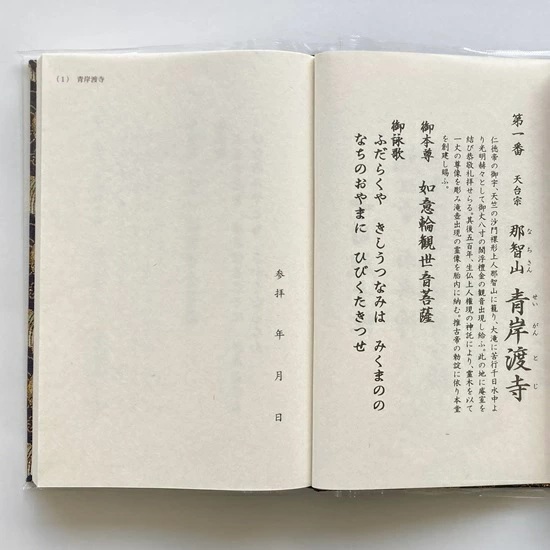 第一番 天台宗 那智山 青岸渡寺
なちさん せいがんとじ
仁徳帝の御宇、天竺の沙門裸形上人那智山に籠り、大滝に苦行千日水中よ
り光明赫々として御丈八寸の閻浮檀金の観音出現し給ふ。此の地に庵室を
結び恭敬礼拝せらる。其後五百年、生仏上人権現の神託により、霊木を以て
一丈の尊像を彫み滝壺出現の霊像を胎内に納む。推古帝の勅詮に依り本堂
を創建し賜ふ。
御本尊 如意輪観世音菩薩
御詠歌
ふだらくや きしうつなみは みくまのの
なちのおやまに ひびくたきつせ
(1) 青岸渡寺
参拝 年 月 日